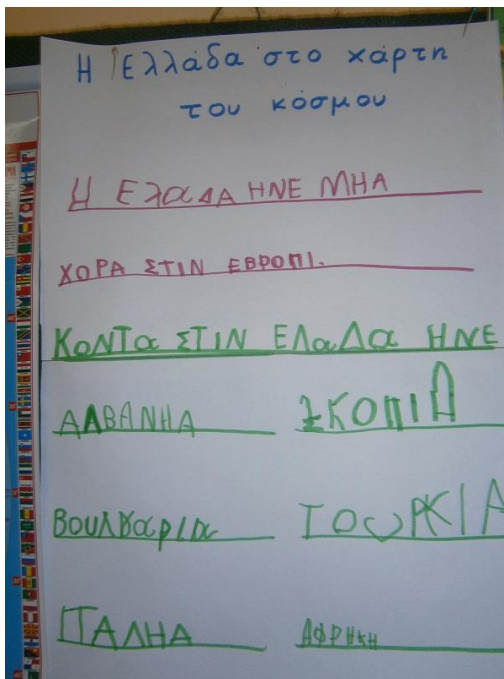 Η Ελλάδα στο χάρτη
του κόσμου
Η ΕλαΔΑ ΗΝΕ ΜΗΑ
ΧΟΡΑ ΣΤΙΝ ΕΒΡΟΠΙ.
ΚΟΝΤα ΣΤΙΝ ΕΛαΔα ΗΝΕ
ΑΛΒΑΝΗΑ ΣΚΟΠΙΑ
ΒουΛΓαρΙα ΤΟυΡΚΙΑ
ΙΤΑΛΗΑ ΑΦΡΗΚΗ